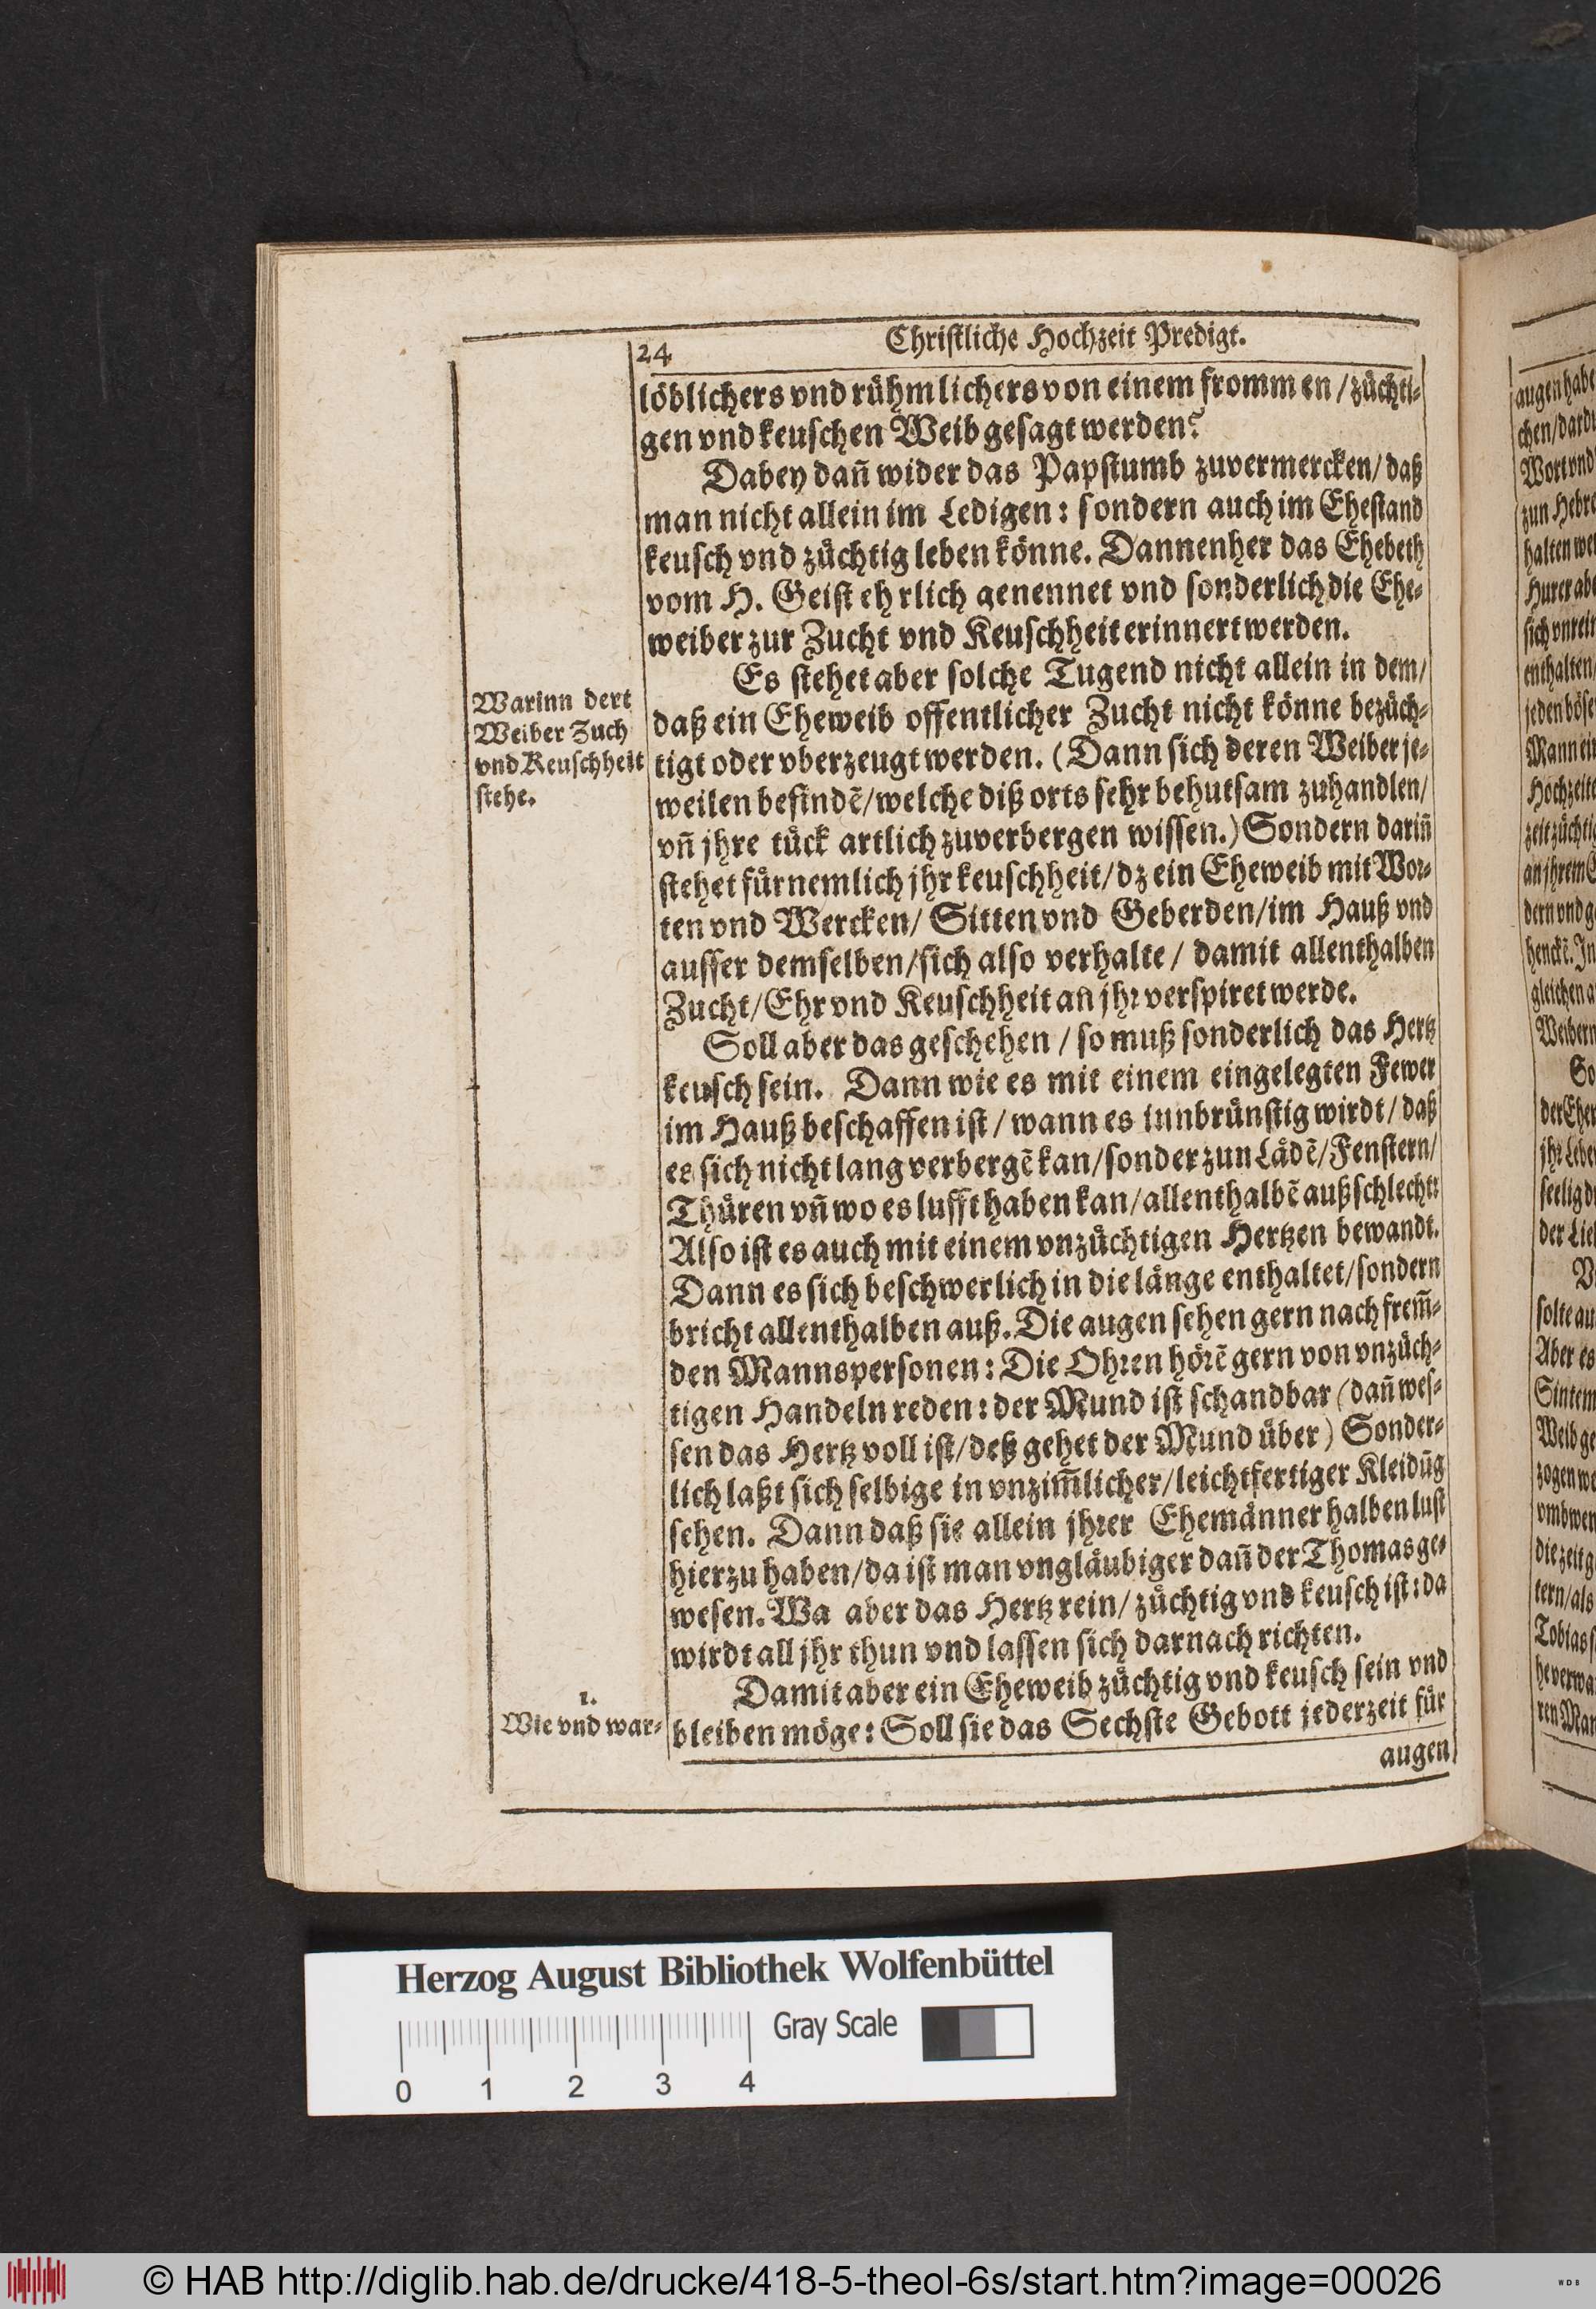 24
Christliche Hochzeit Predigt.
löblichers vnd rühmlichers von einem frommen / züchti-
gen vnd keuschen Weib gesagt werden?
Dabey dañ wider das Papstumb zuvermercken / daß
man nicht allein im Ledigen: sondern auch im Ehestand
keusch vnd züchtig leben könne. Dannenher das Ehebeth
vom H. Geist ehrlich genennet vnd sonderlich die Ehe-
weiber zur Zucht vnd Keuschheit erinnert werden.
Es stehet aber solche Tugend nicht allein in dem /
daß ein Eheweib offentlicher Zucht nicht könne bezüch-
tigt oder vberzeugt werden. (Dann sich deren Weiber je-
weilen befindẽ / welche diß orts sehr behutsam zuhandlen /
vñ jhre tück artlich zuverbergen wissen.) Sondern dariñ
stehet fürnemlich jhr keuschheit / dz ein Eheweib mit Wor-
ten vnd Wercken / Sitten vnd Geberden / im Hauß vnd
ausser demselben / sich also verhalte / damit allenthalben
Zucht / Ehr vnd Keuschheit an jhr verspiret werde.
Soll aber das geschehen / so muß sonderlich das Hertz
keusch sein. Dann wie es mit einem eingelegten Fewer
im Hauß beschaffen ist / wann es innbrünstig wirdt / daß
es sich nicht lang verbergẽ kan / sonder zun Lädẽ / Fenstern /
Thüren vñ wo es lufft haben kan / allenthalbẽ außschlecht:
Also ist es auch mit einem vnzüchtigen Hertzen bewandt.
Dann es sich beschwerlich in die länge enthaltet / sondern
bricht allenthalben auß. Die augen sehen gern nach frem̃-
den Mannspersonen: Die Ohren hörẽ gern von vnzüch-
tigen Handeln reden: der Mund ist schandbar (dañ wes-
sen das Hertz voll ist / deß gehet der Mund über) Sonder-
lich laßt sich selbige in vnzim̃licher / leichtfertiger Kleidũg
sehen. Dann daß sie allein jhrer Ehemänner halben lust
hierzu haben / da ist man vngläubiger dañ der Thomas ge-
wesen. Wa aber das Hertz rein / züchtig vnd keusch ist: da
wirdt all jhr thun vnd lassen sich darnach richten.
Damit aber ein Eheweib züchtig vnd keusch sein vnd
bleiben möge: Soll sie das Sechste Gebott jederzeit für
augen
Warinn dert
Weiber Zuch
vnd Keuschheit
stehe.
1.
Wie vnd war-
augen habe
chen / dardu
Wort vnd
zun Hebre
halten wer
Hurer abe
sich vnrein
enthalten /
jeden böse
Mann ein
Hochzeite
zeit züchtig
an jhrem E
dern vnd g
henckẽ. In
gleichen a
Weibern
So
der Eher
jhr Lebe
seelig d
der Lieb
solte au
Aber es
Sintem
Weib ge
zogen we
vmbwen
die zeit g
tern / als
Tobias s
he verwa
ren Man
Herzog August Bibliothek Wolfenbüttel
Gray Scale
0 1 2 3 4
© HAB http://diglib.hab.de/drucke/418-5-theol-6s/start.htm?image=00026
WDB